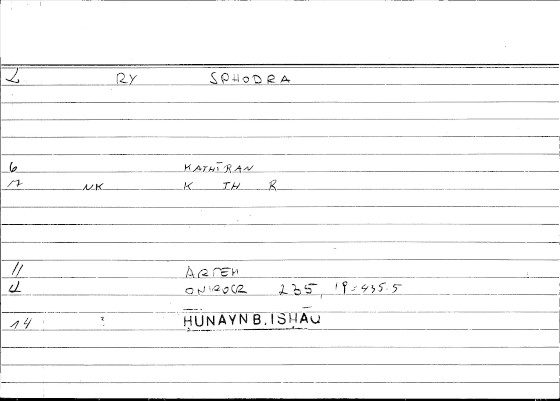 L RY SPHODRA
6 KATHĪRAN
17 NK K TH R
11 ARTEM
4 ONIROCR 235, 19 = 435.5
14 ? ḤUNAYN B. ISḤĀQ